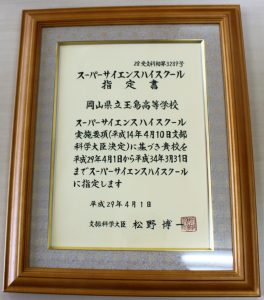 28受文科初第3209号
スーパーサイエンスハイスクール
指定書
岡山県立玉島高等学校
スーパーサイエンスハイスクール
実施要項(平成14年4月10日文部
科学大臣決定)に基づき貴校を
平成29年4月1日から平成34年3月31日
までスーパーサイエンスハイスクール
に指定します
平成29年4月1日
文部科学大臣 松野博一